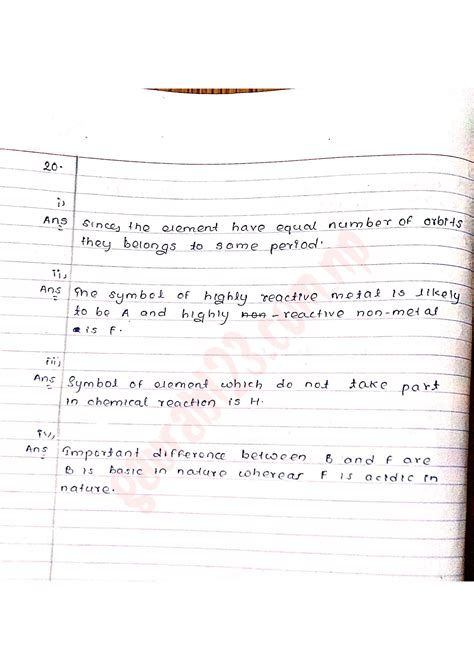 20.
i,
Ans Since, the element have equal number of orbits
they belongs to same period.
ii,
Ans The symbol of highly reactive metal is likely
to be A and highly non - reactive non-metal
is F.
iii,
Ans Symbol of element which do not take part
in chemical reaction is H.
iv,
Ans Important difference between B and F are
B is basic in nature whereas F is acidic in
nature.
gourab123.com.np